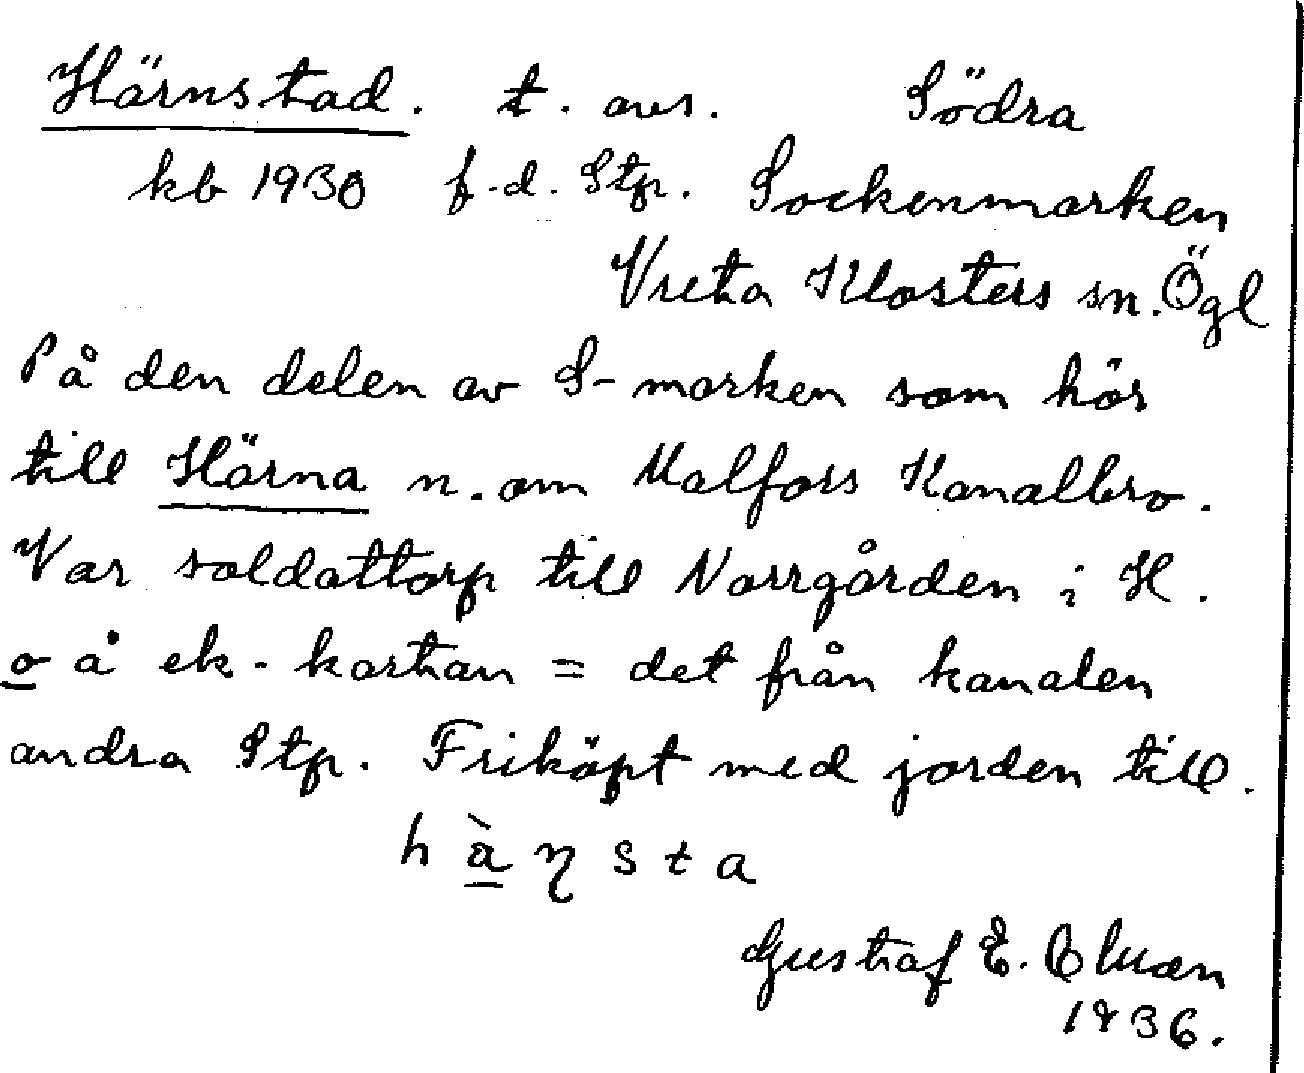 Härnstad. t. avs. Södra
kb 1930 f.d. Stp. Sockenmarken
Vreta Klosters sn. Ögl
På den delen av S-marken som hör
till Härna n. om Malfors Kanalbro.
Var soldattorp till Norrgården i H.
o å ek-kartan = det från kanalen
andra Stp. Friköpt med jorden till.
h à̱ η s t a
Gustaf E.
1936.